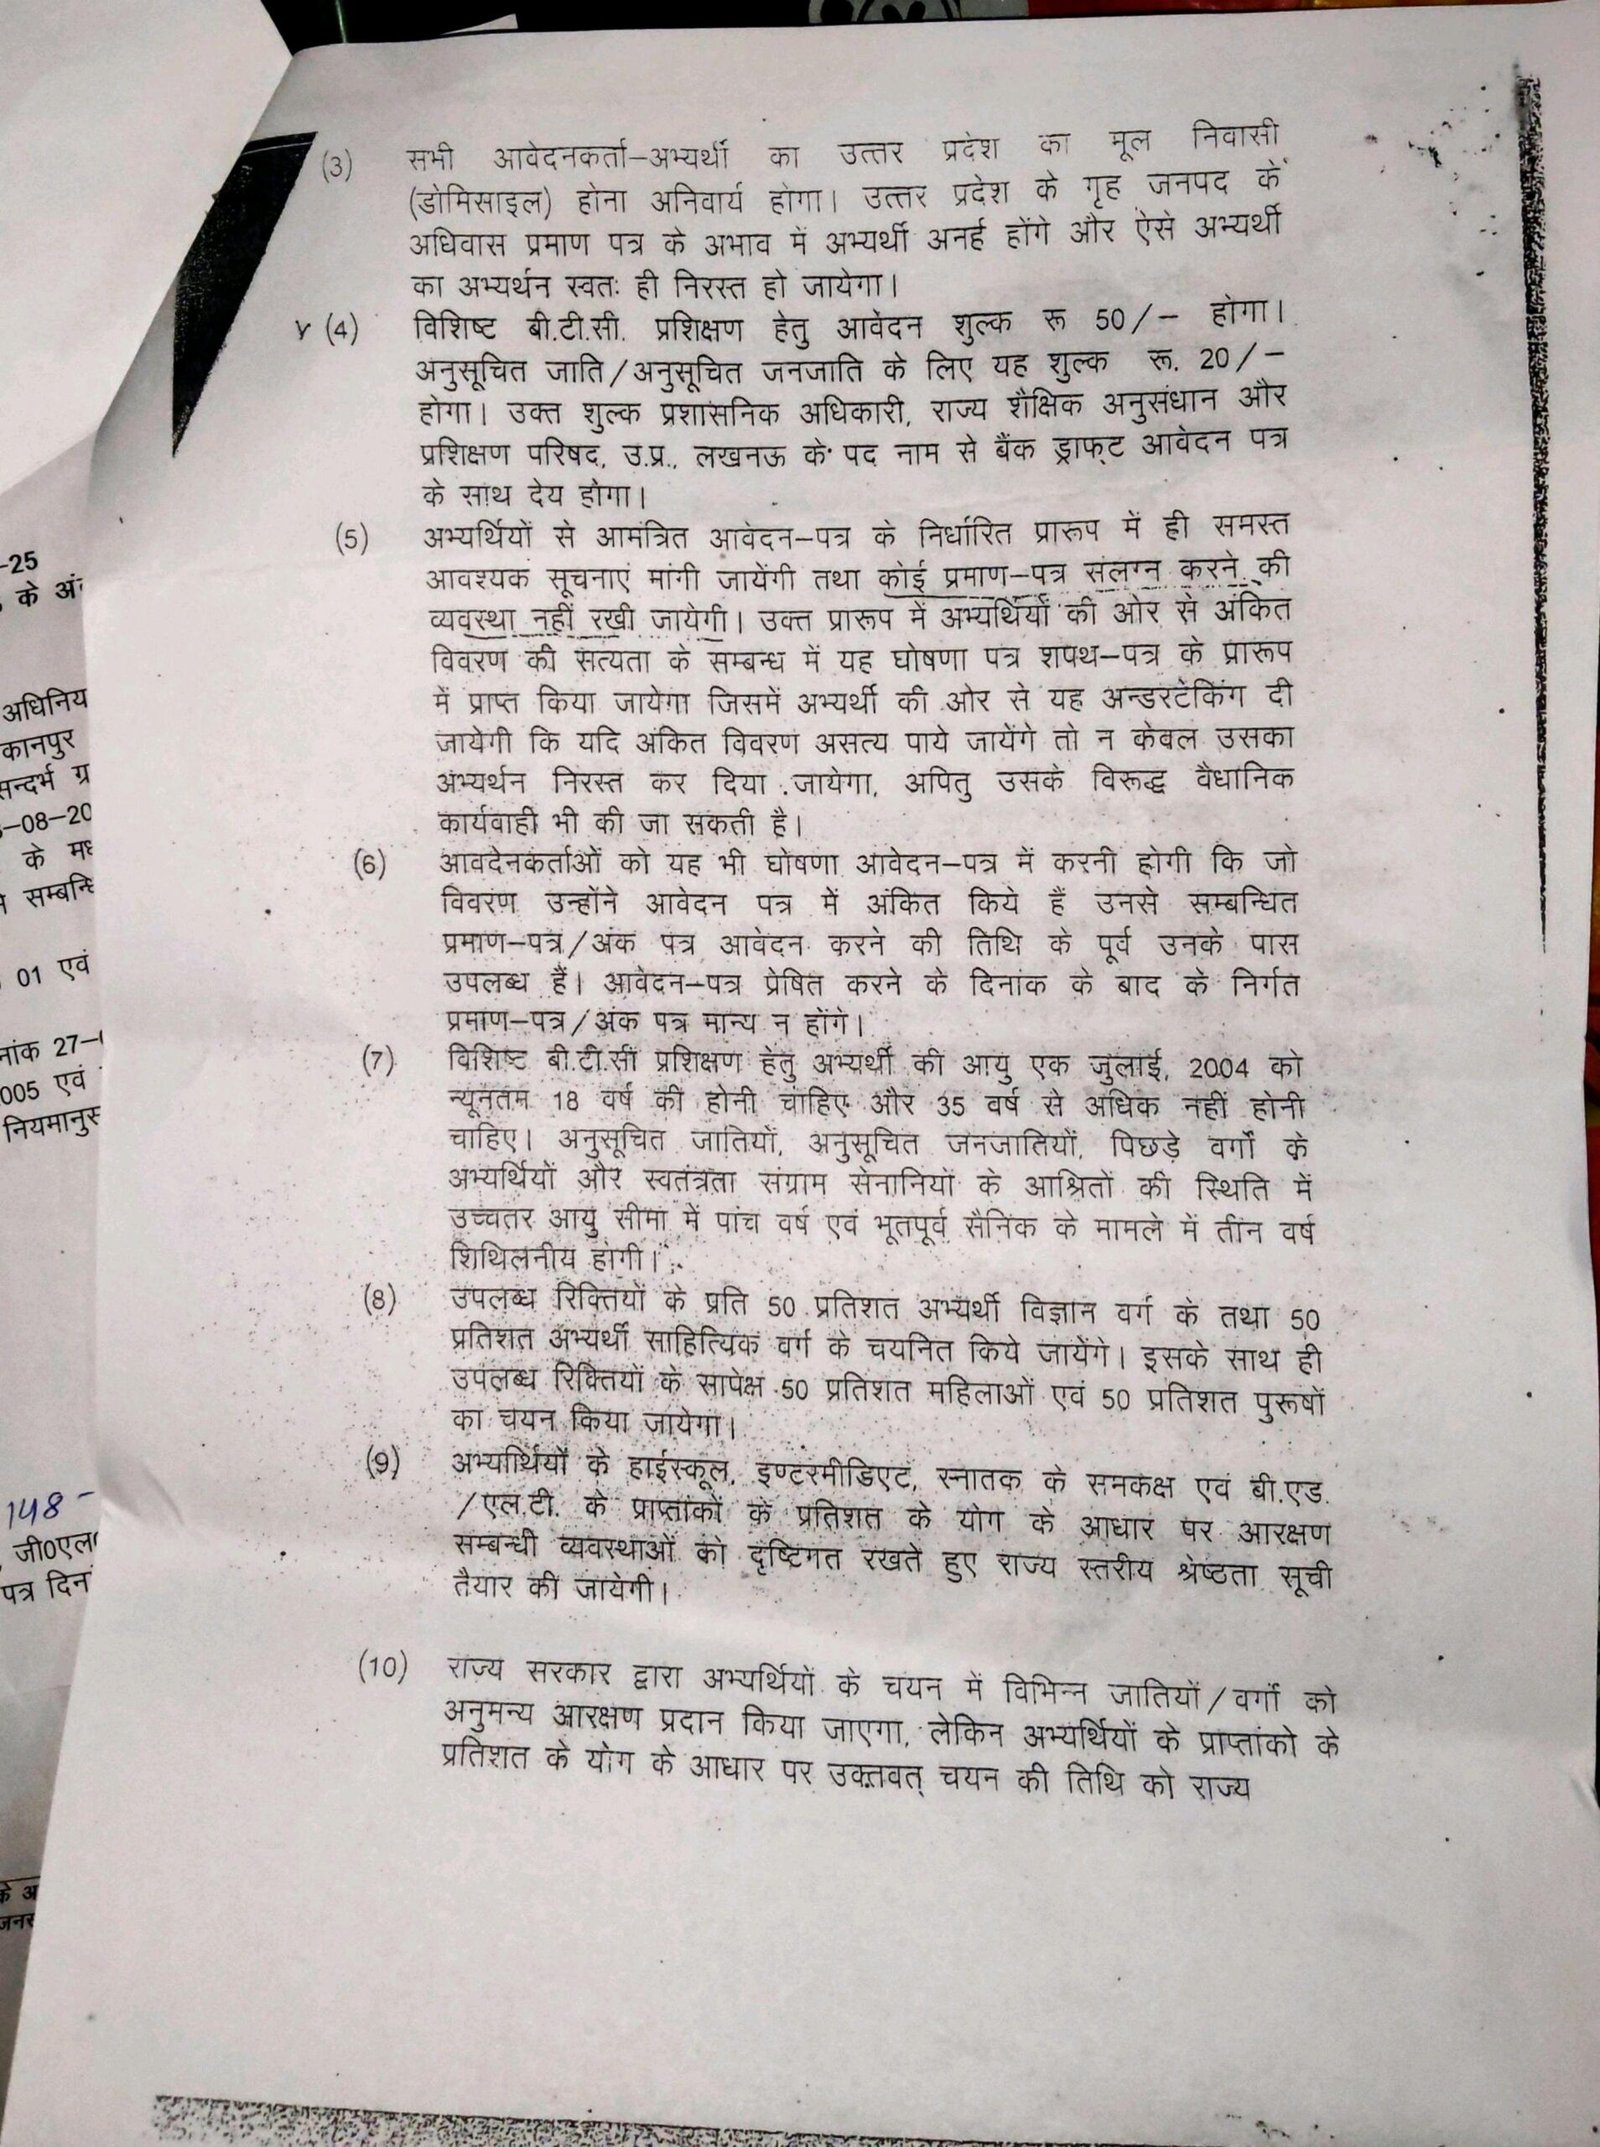 (3) सभी आवेदनकर्ता–अभ्यर्थी का उत्तर प्रदेश का मूल निवासी
(डोमिसाइल) होना अनिवार्य होगा। उत्तर प्रदेश के गृह जनपद के
अधिवास प्रमाण पत्र के अभाव में अभ्यर्थी अनर्ह होंगे और ऐसे अभ्यर्थी
का अभ्यर्थन स्वतः ही निरस्त हो जायेगा।
(4) विशिष्ट बी.टी.सी. प्रशिक्षण हेतु आवेदन शुल्क रू 50/– होगा।
अनुसूचित जाति/अनुसूचित जनजाति के लिए यह शुल्क रू. 20/–
होगा। उक्त शुल्क प्रशासनिक अधिकारी, राज्य शैक्षिक अनुसंधान और
प्रशिक्षण परिषद, उ.प्र., लखनऊ के पद नाम से बैंक ड्राफ्ट आवेदन पत्र
के साथ देय होगा।
(5) अभ्यर्थियों से आमंत्रित आवेदन–पत्र के निर्धारित प्रारूप में ही समस्त
आवश्यक सूचनाएं मांगी जायेंगी तथा कोई प्रमाण–पत्र संलग्न करने की
व्यवस्था नहीं रखी जायेगी। उक्त प्रारूप में अभ्यर्थियों की ओर से अंकित
विवरण की सत्यता के सम्बन्ध में यह घोषणा पत्र शपथ–पत्र के प्रारूप
में प्राप्त किया जायेगा जिसमें अभ्यर्थी की ओर से यह अन्डरटेकिंग दी
जायेगी कि यदि अंकित विवरण असत्य पाये जायेंगे तो न केवल उसका
अभ्यर्थन निरस्त कर दिया जायेगा, अपितु उसके विरूद्ध वैधानिक
कार्यवाही भी की जा सकती है।
(6) आवदेनकर्ताओं को यह भी घोषणा आवेदन–पत्र में करनी होगी कि जो
विवरण उन्होंने आवेदन पत्र में अंकित किये हैं उनसे सम्बन्धित
प्रमाण–पत्र/अंक पत्र आवेदन करने की तिथि के पूर्व उनके पास
उपलब्ध हैं। आवेदन–पत्र प्रेषित करने के दिनांक के बाद के निर्गत
प्रमाण–पत्र/अंक पत्र मान्य न होंगे।
(7) विशिष्ट बी.टी.सी प्रशिक्षण हेतु अभ्यर्थी की आयु एक जुलाई, 2004 को
न्यूनतम 18 वर्ष की होनी चाहिए और 35 वर्ष से अधिक नहीं होनी
चाहिए। अनुसूचित जातियों, अनुसूचित जनजातियों, पिछड़े वर्गों के
अभ्यर्थियों और स्वतंत्रता संग्राम सेनानियों के आश्रितों की स्थिति में
उच्चतर आयु सीमा में पांच वर्ष एवं भूतपूर्व सैनिक के मामले में तीन वर्ष
शिथिलनीय होगी।
(8) उपलब्ध रिक्तियों के प्रति 50 प्रतिशत अभ्यर्थी विज्ञान वर्ग के तथा 50
प्रतिशत अभ्यर्थी साहित्यिक वर्ग के चयनित किये जायेंगे। इसके साथ ही
उपलब्ध रिक्तियों के सापेक्ष 50 प्रतिशत महिलाओं एवं 50 प्रतिशत पुरूषों
का चयन किया जायेगा।
(9) अभ्यर्थियों के हाईस्कूल, इण्टरमीडिएट, स्नातक के समकक्ष एवं बी.एड.
/एल.टी. के प्राप्तांकों के प्रतिशत के योग के आधार पर आरक्षण
सम्बन्धी व्यवस्थाओं को दृष्टिगत रखते हुए राज्य स्तरीय श्रेष्ठता सूची
तैयार की जायेगी।
(10) राज्य सरकार द्वारा अभ्यर्थियों के चयन में विभिन्न जातियों/वर्गों को
अनुमन्य आरक्षण प्रदान किया जाएगा, लेकिन अभ्यर्थियों के प्राप्तांको के
प्रतिशत के योग के आधार पर उक्तवत् चयन की तिथि को राज्य
–25
के
कानपुर
–08–20
के
01 एवं
27–
005 एवं
148 –
पत्र